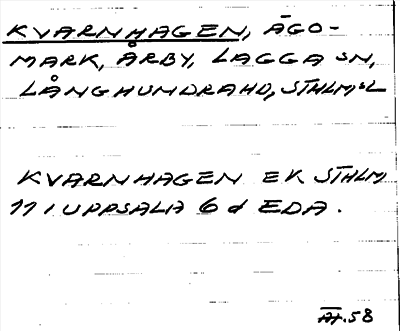 KVARNHAGEN, ÄGO-
MARK, ÅRBY, LAGGA SN,
LÅNGHUNDRA HD, STHLMS L
KVARNHAGEN EK STHLM
11 I UPPSALA 6 d EDA.
58